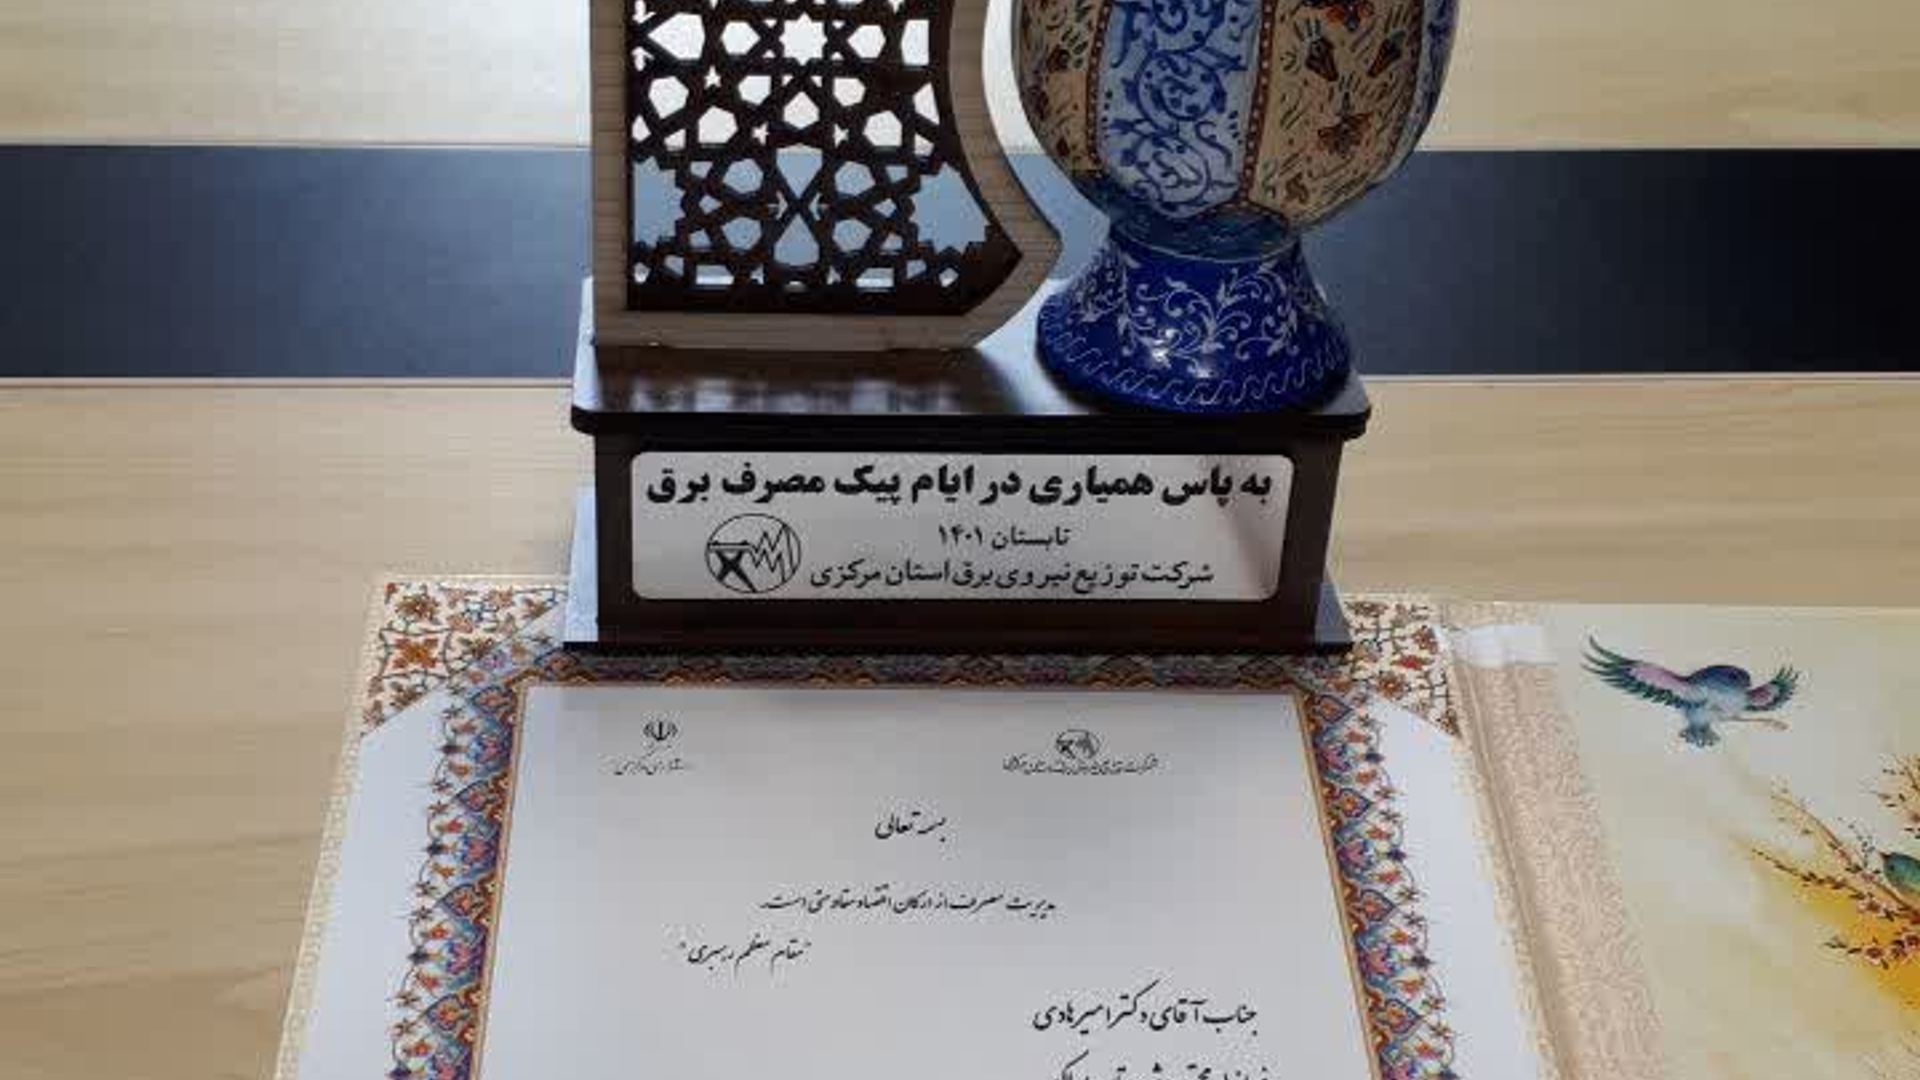 به پاس همیاری در ایام پیک مصرف برق
تابستان ۱۴۰۱
شرکت توزیع نیروی برق استان مرکزی
بسمه تعالی
مدیریت مصرف از ارکان اقتصاد مقاومتی است.
"مقام معظم رهبری"
جناب آقای دکتر امیر هادی